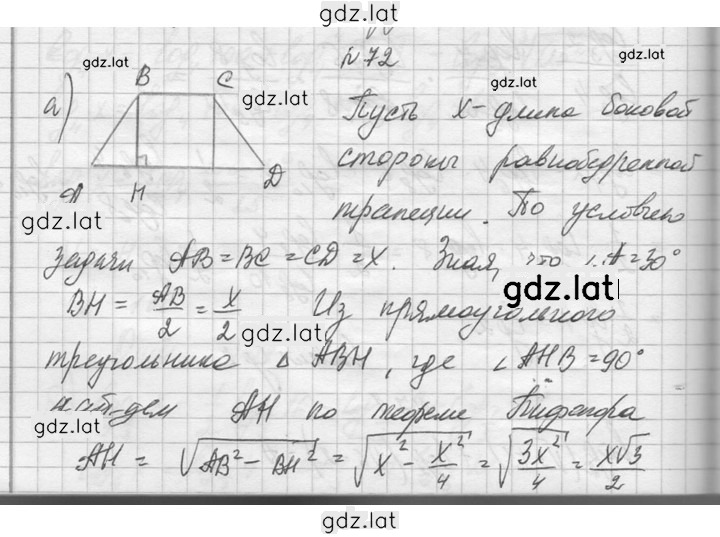 gdz.lat
N72
gdz.lat
gdz.lat
gdz.lat
gdz.lat
а)
B C
A H D
Пусть x - длина боковой
стороны равнобедренной
трапеции. По условию
gdz.lat
задачи AB = BC = CD = x. Зная, что ∠A = 30°
gdz.lat
BH = AB/2 = x/2 Из прямоугольного
gdz.lat
треугольника △ ABH, где ∠ AHB = 90°
найдем AH по теореме Пифагора
gdz.lat
gdz.lat
AH = √(AB² - BH²) = √(x² - x²/4) = √(3x²/4) = x√3/2
gdz.lat